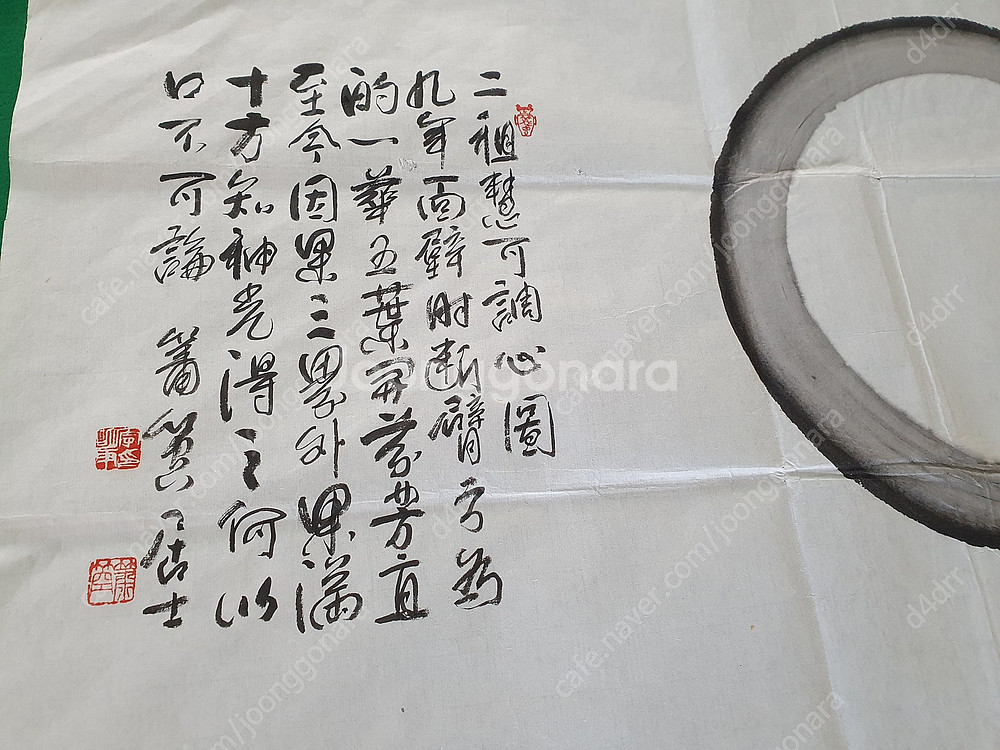 二祖慧可調心圖
九年面壁時断臂方為
的一華五葉開芬芳直
至今因果三界外果滿
十方知神光得之何以
口不可論 居士
joonggonara
cafe.naver.com/joonggonara
d4drr